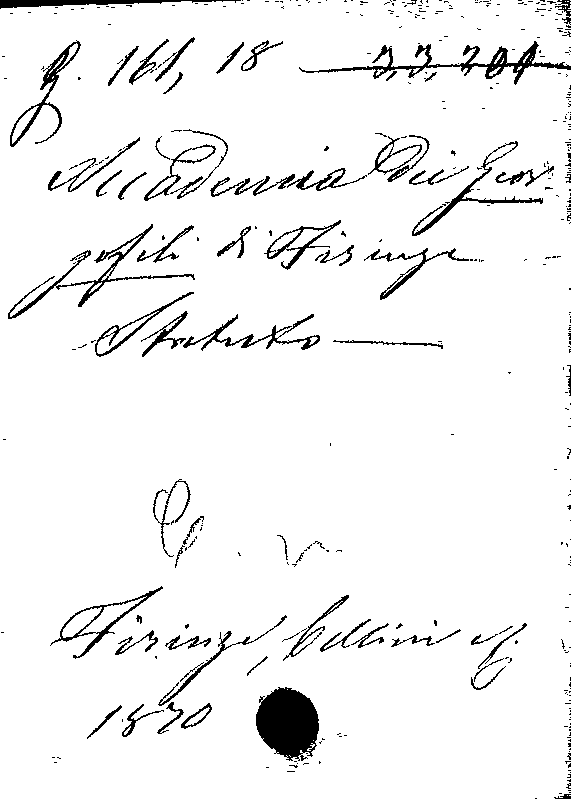 G. 161, 18 33, 201
Accademia dei Geor-
gofili di Firenze
Statuto
Firenze, Cellini ef.
1870